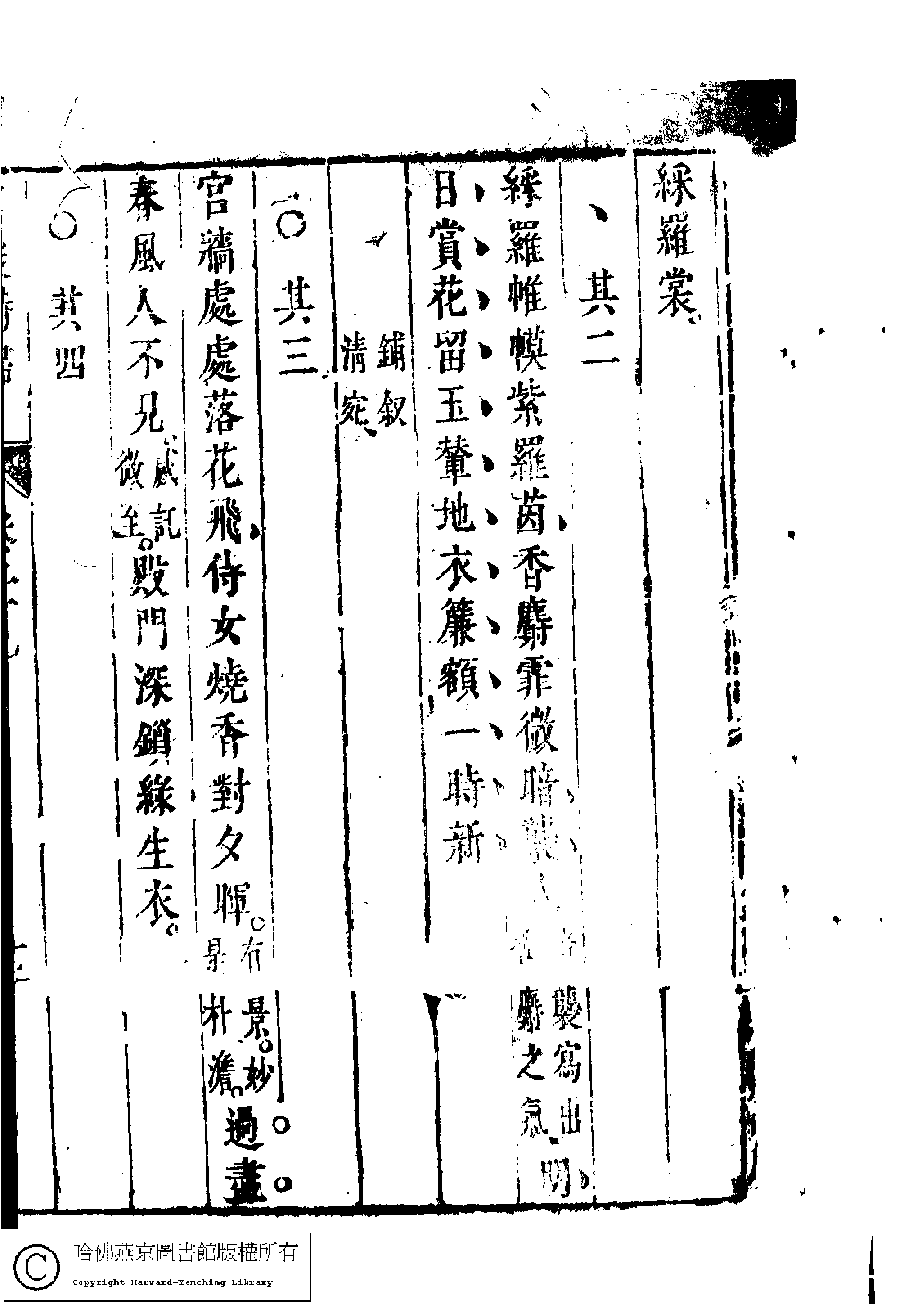 綵羅裳
其二
綵羅帷幙紫羅茵香麝霏微暗襲人暗襲寫出香麝之氣明
日賞花留玉輦地衣簾額一時新
鋪叙清宛
其三
宮牆處處落花飛侍女燒香對夕暉有景景妙朴澹過盡
春風人不見感記微至殿門深鎖綠生衣
其四
哈佛燕京圖書館版權所有
Copyright Harvard-Yenching Library